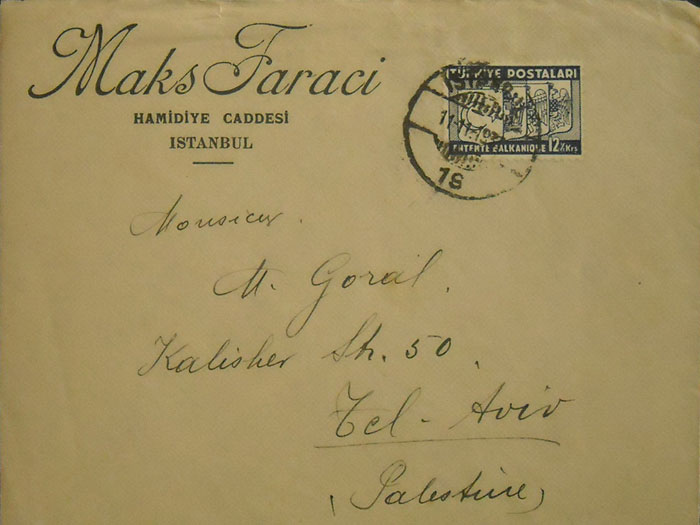 Maks Faraci
HAMIDIYE CADDESİ
ISTANBUL
TÜRKİYE POSTALARI
ENTENTE BALKANIQUE 12½ Krş
Monsieur.
M. Goral.
Kalisher Str. 50.
Tel-Aviv
(Palestine)